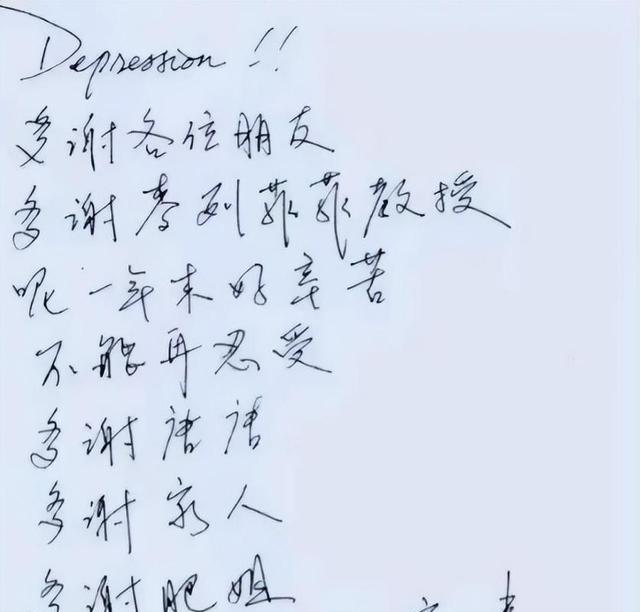 Depression !!
多谢各位朋友
多谢麦列菲菲教授
呢一年来好辛苦
不能再忍受
多谢唐唐
多谢家人
多谢肥姐